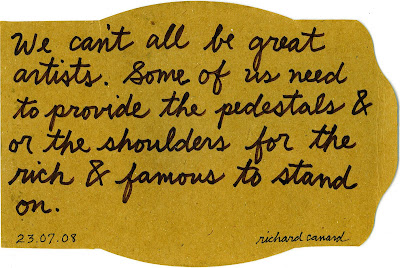 We can't all be great
artists. Some of us need
to provide the pedestals &
or the shoulders for the
rich & famous to stand
on.
23.07.08 richard canard